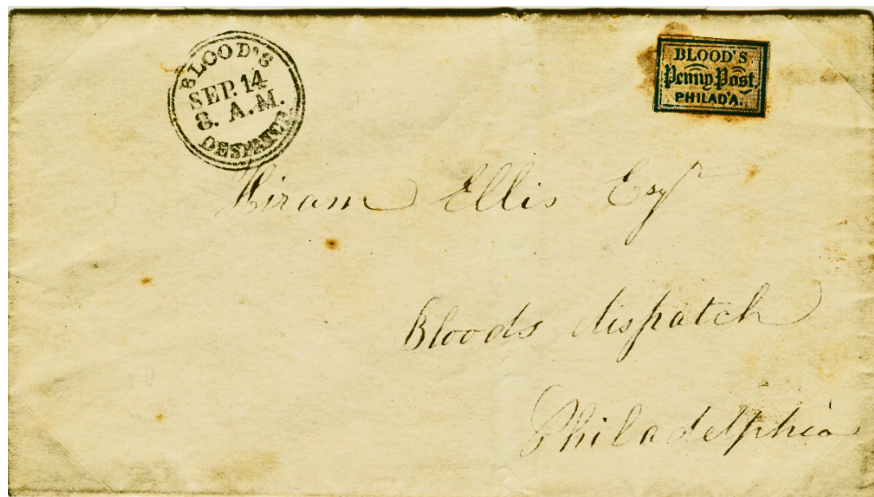 BLOOD'S
SEP. 14
8. A.M.
DESPATCH
BLOOD'S
Penny Post
PHILAD'A.
Hiram Ellis Esqr
Bloods dispatch
Philadelphia